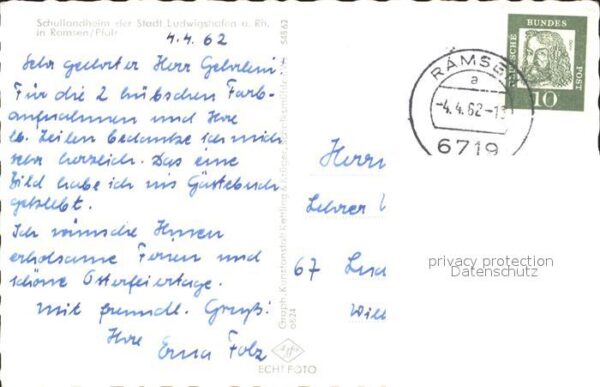 Schullandheim der Stadt Ludwigshafen a. Rh.
in Ramsen/Pfalz
4.4.62
Sehr geehrter Herr
Für die 2 hübschen Farb-
aufnahmen und Ihre
lb. Zeilen bedanke ich mich
sehr herzlich. Das eine
Bild habe ich ins Gästebuch
geklebt.
Ich wünsche Ihnen
erholsame Ferien und
schöne Osterfeiertage.
Mit freundl. Gruß!
Ihre Erna Folz
ECHT FOTO
Agfa
0824
Graph. Kunstanstalt Kettling & Krüger
RAMSE
a
-4.4.62-13
6719
DEUTSCHE
BUNDES
POST
10
Herrn
Lehrer
67
privacy protection
Datenschutz